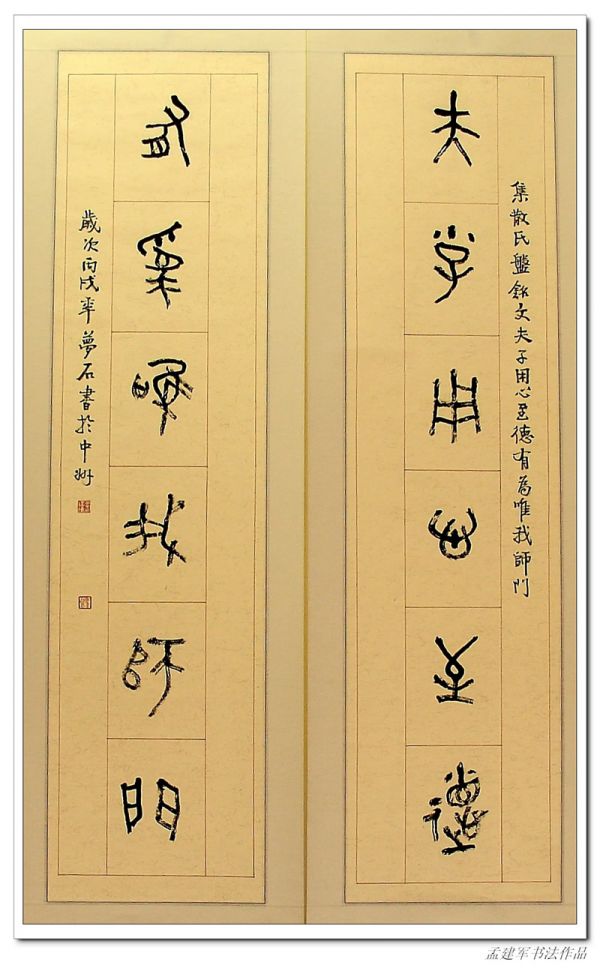 集散氏盤銘文夫子用心至德有為唯我師門
夫子用心至德
有為唯我師門
歲次丙戌年夢石書於中州
孟建军书法作品